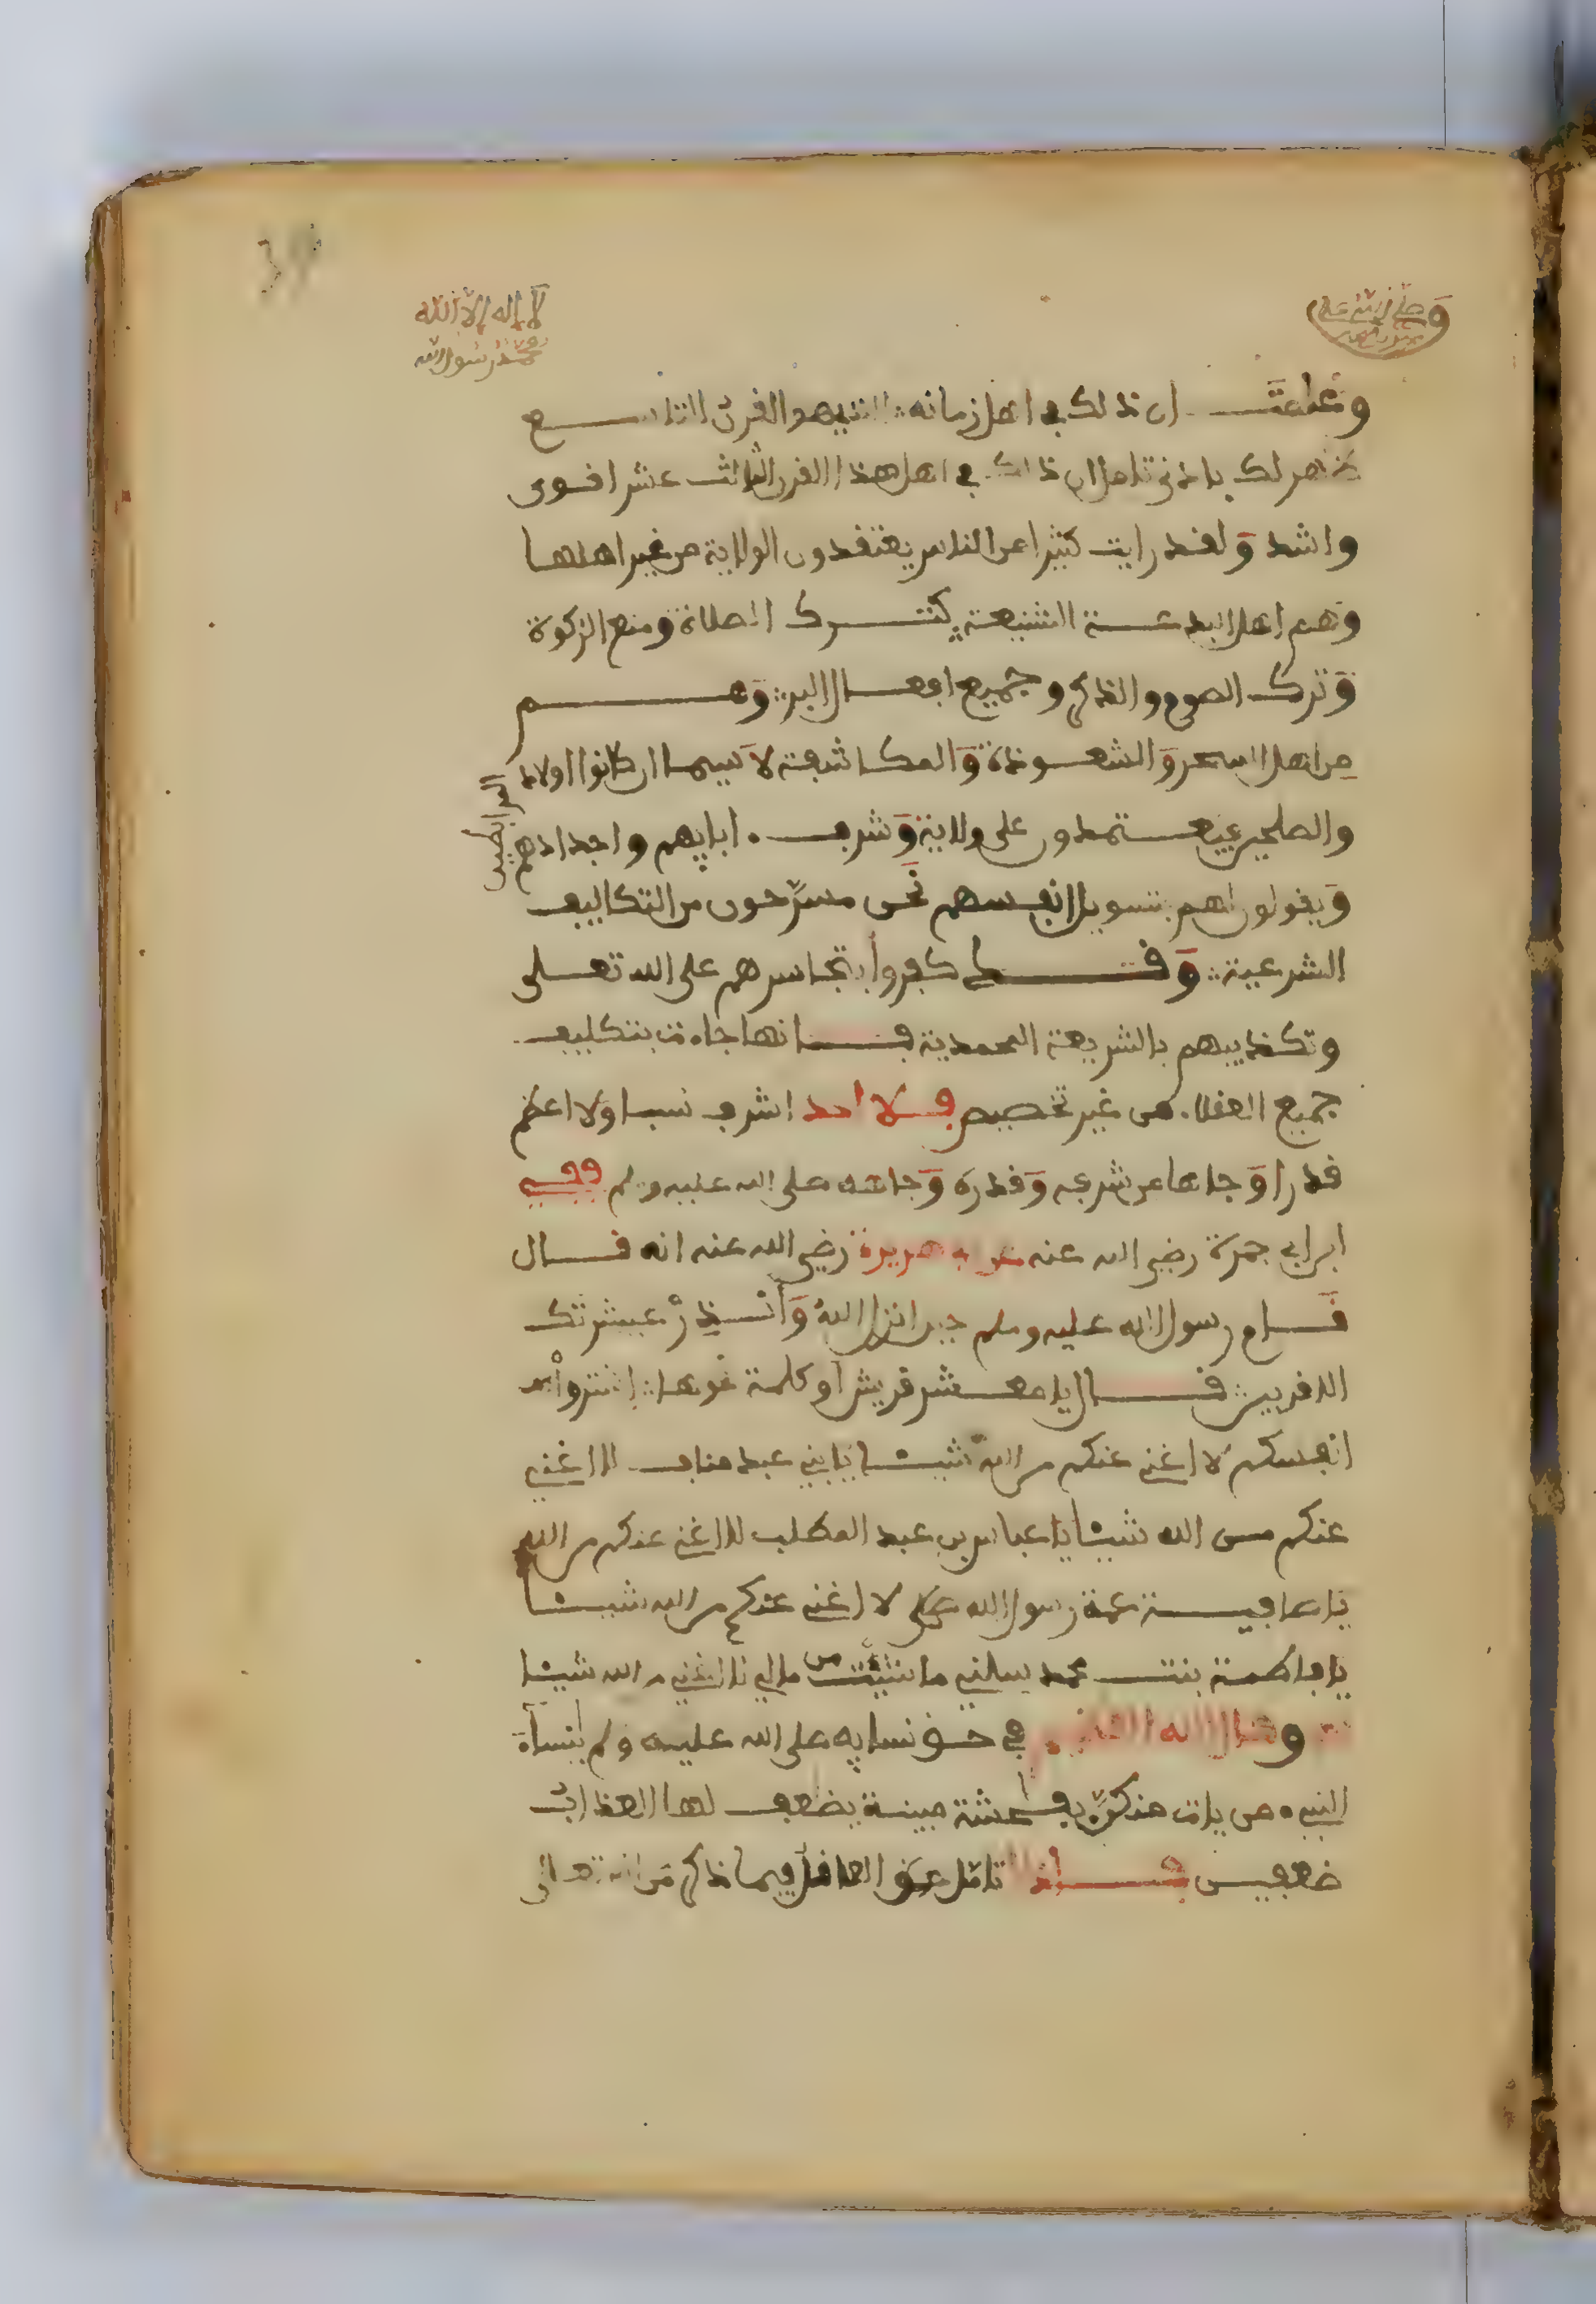 لا إله إلا الله
محمد رسول الله
ان ذلك في اهل زمانه الذي هو القرن التاسع
لك بادنى تامل ان ذلك في اهل هذا القرن الثالث عشر اقوى
واشد ولقد رايت كثيرا من الناس يعتقدون الولاية من غير اهلها
وهم اهل البدعة الشنيعة كترك الصلاة ومنع الزكوة
وترك الصوم والذكر وجميع افعال البر وهم
من اهل السحر والشعوذة والمكاشفة لا سيما ان كانوا اولاد المرابطين
والصلحين فيعتمدون على ولاية وشرف ابايهم واجدادهم
ويقولون لهم بتسويل انفسهم نحن مسرحون من التكاليف
الشرعية وقد كفروا بتجاسرهم على الله تعلى
وتكذيبهم بالشريعة المحمدية فانها جاءت بتكليف
جميع العقلاء من غير تخصيص فلا احد اشرف نسبا ولا اعظم
قدرا وجاها من شرفه وقدره وجاهه صلى الله عليه وسلم وفي
ابن ابي جمرة رضي الله عنه عن ابي هريرة رضي الله عنه انه قال
قام رسول الله عليه وسلم حين انزل الله وأنذر عشيرتك
الاقربين قال يا معشر قريش او كلمة نحوها اشتروا
انفسكم لا اغني عنكم من الله شيئا يا بني عبد مناف لا اغني
عنكم من الله شيئا يا عباس بن عبد المطلب لا اغني عنكم من الله
يا صافية عمة رسول الله صلى لا اغني عنكم من الله شيئا
يا فاطمة بنت محمد سليني ما شئت من مالي لا اغني من الله شيئا
وقال الله العظيم في حق نسايه صلى الله عليه وسلم ينساء
النبيء من يات منكن بفحشة مبينة يضعف لها العذاب
ضعفين فاذا تامل العاقل فيما ذكر من انه تعالى